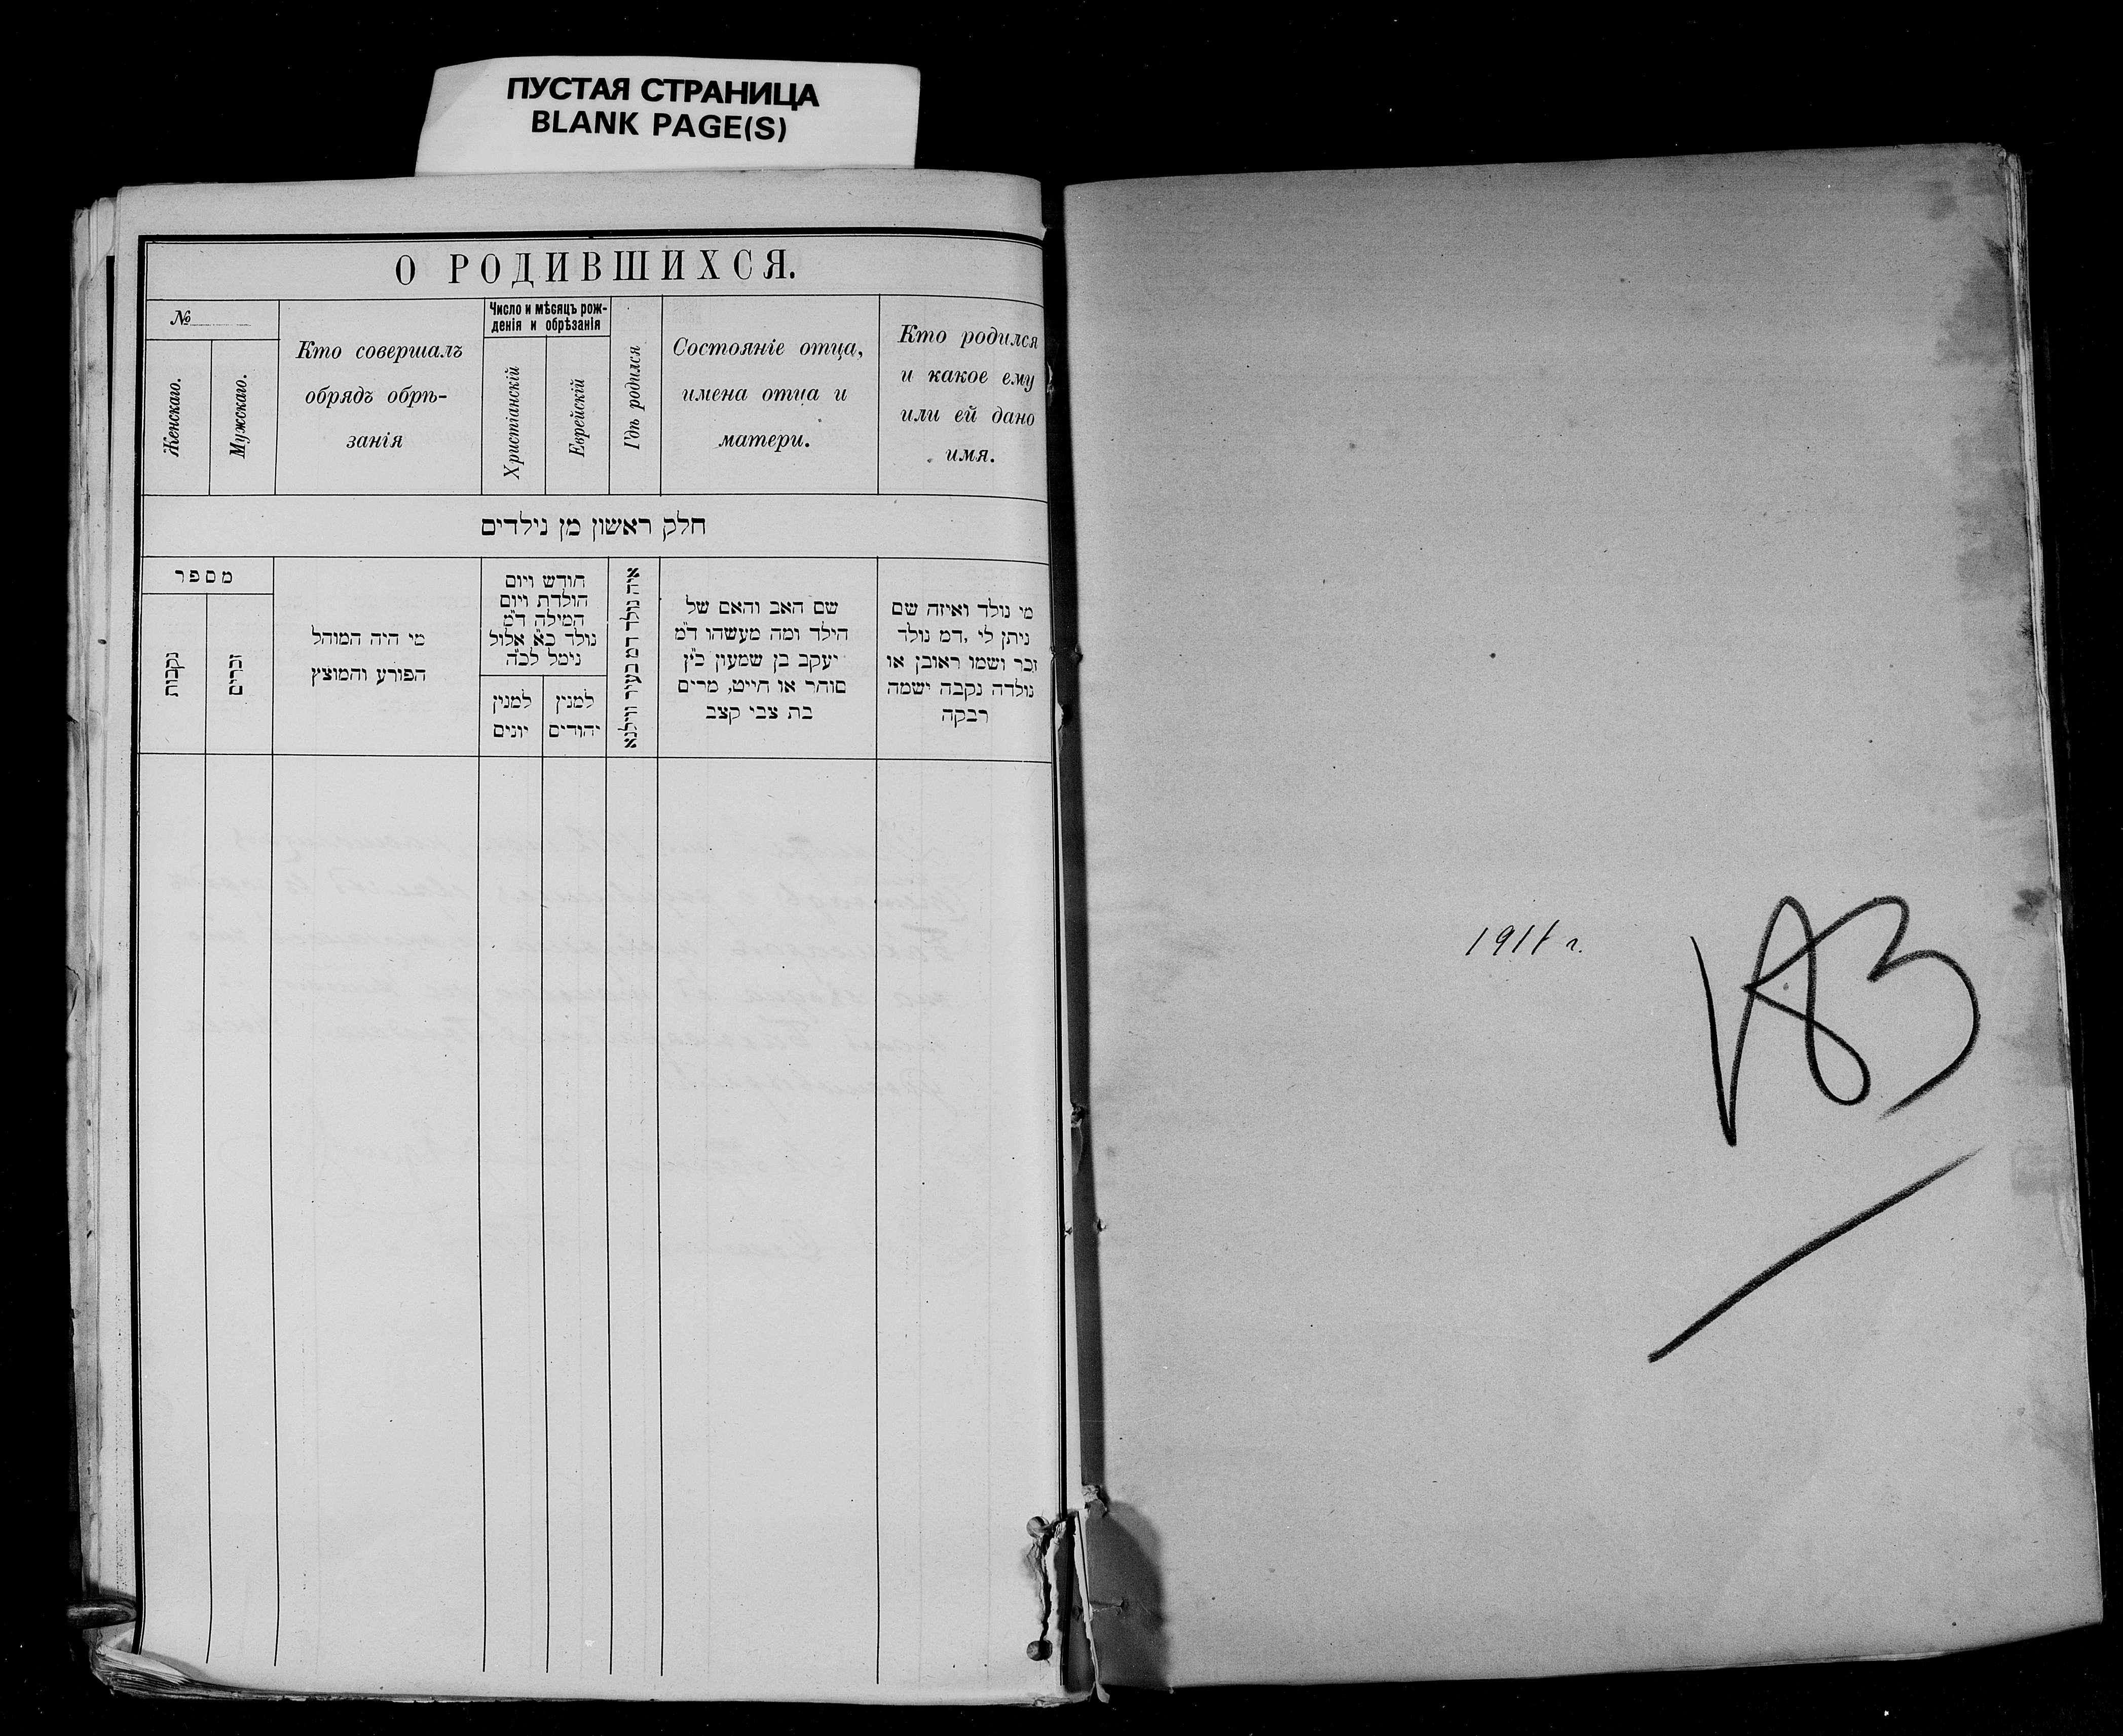 ПУСТАЯ СТРАНИЦА
BLANK PAGE(S)
О РОДИВШИХСЯ.
№
Женскаго.
Мужскаго.
Кто совершалъ
обрядъ обрѣ-
занія
Число и мѣсяцъ рож-
денія и обрѣзанія
Христіанскій
Еврейскій
Гдѣ родился
Состояніе отца,
имена отца и
матери.
Кто родился
и какое ему
или ей дано
имя.
חלק ראשון מן נילדים
מספר
נקבות
זכרים
מי היה המוהל
הפורע והמוצץ
חודש ויום
הולדת ויום
המילה ד״מ
נולד כ״א אלול
נימל לכ״ה
למנין
יונים
למנין
יהודים
איה נולד ד״מ בעיר ווילנא
שם האב והאם של
הילד ומה מעשהו ד״מ
יעקב בן שמעון כ״ץ
סוחר או חייט, מרים
בת צבי קצב
מי נולד ואיזה שם
ניתן לי, דמ נולד
זכר ושמו ראובן או
נולדה נקבה ישמה
רבקה
1911 г.
183